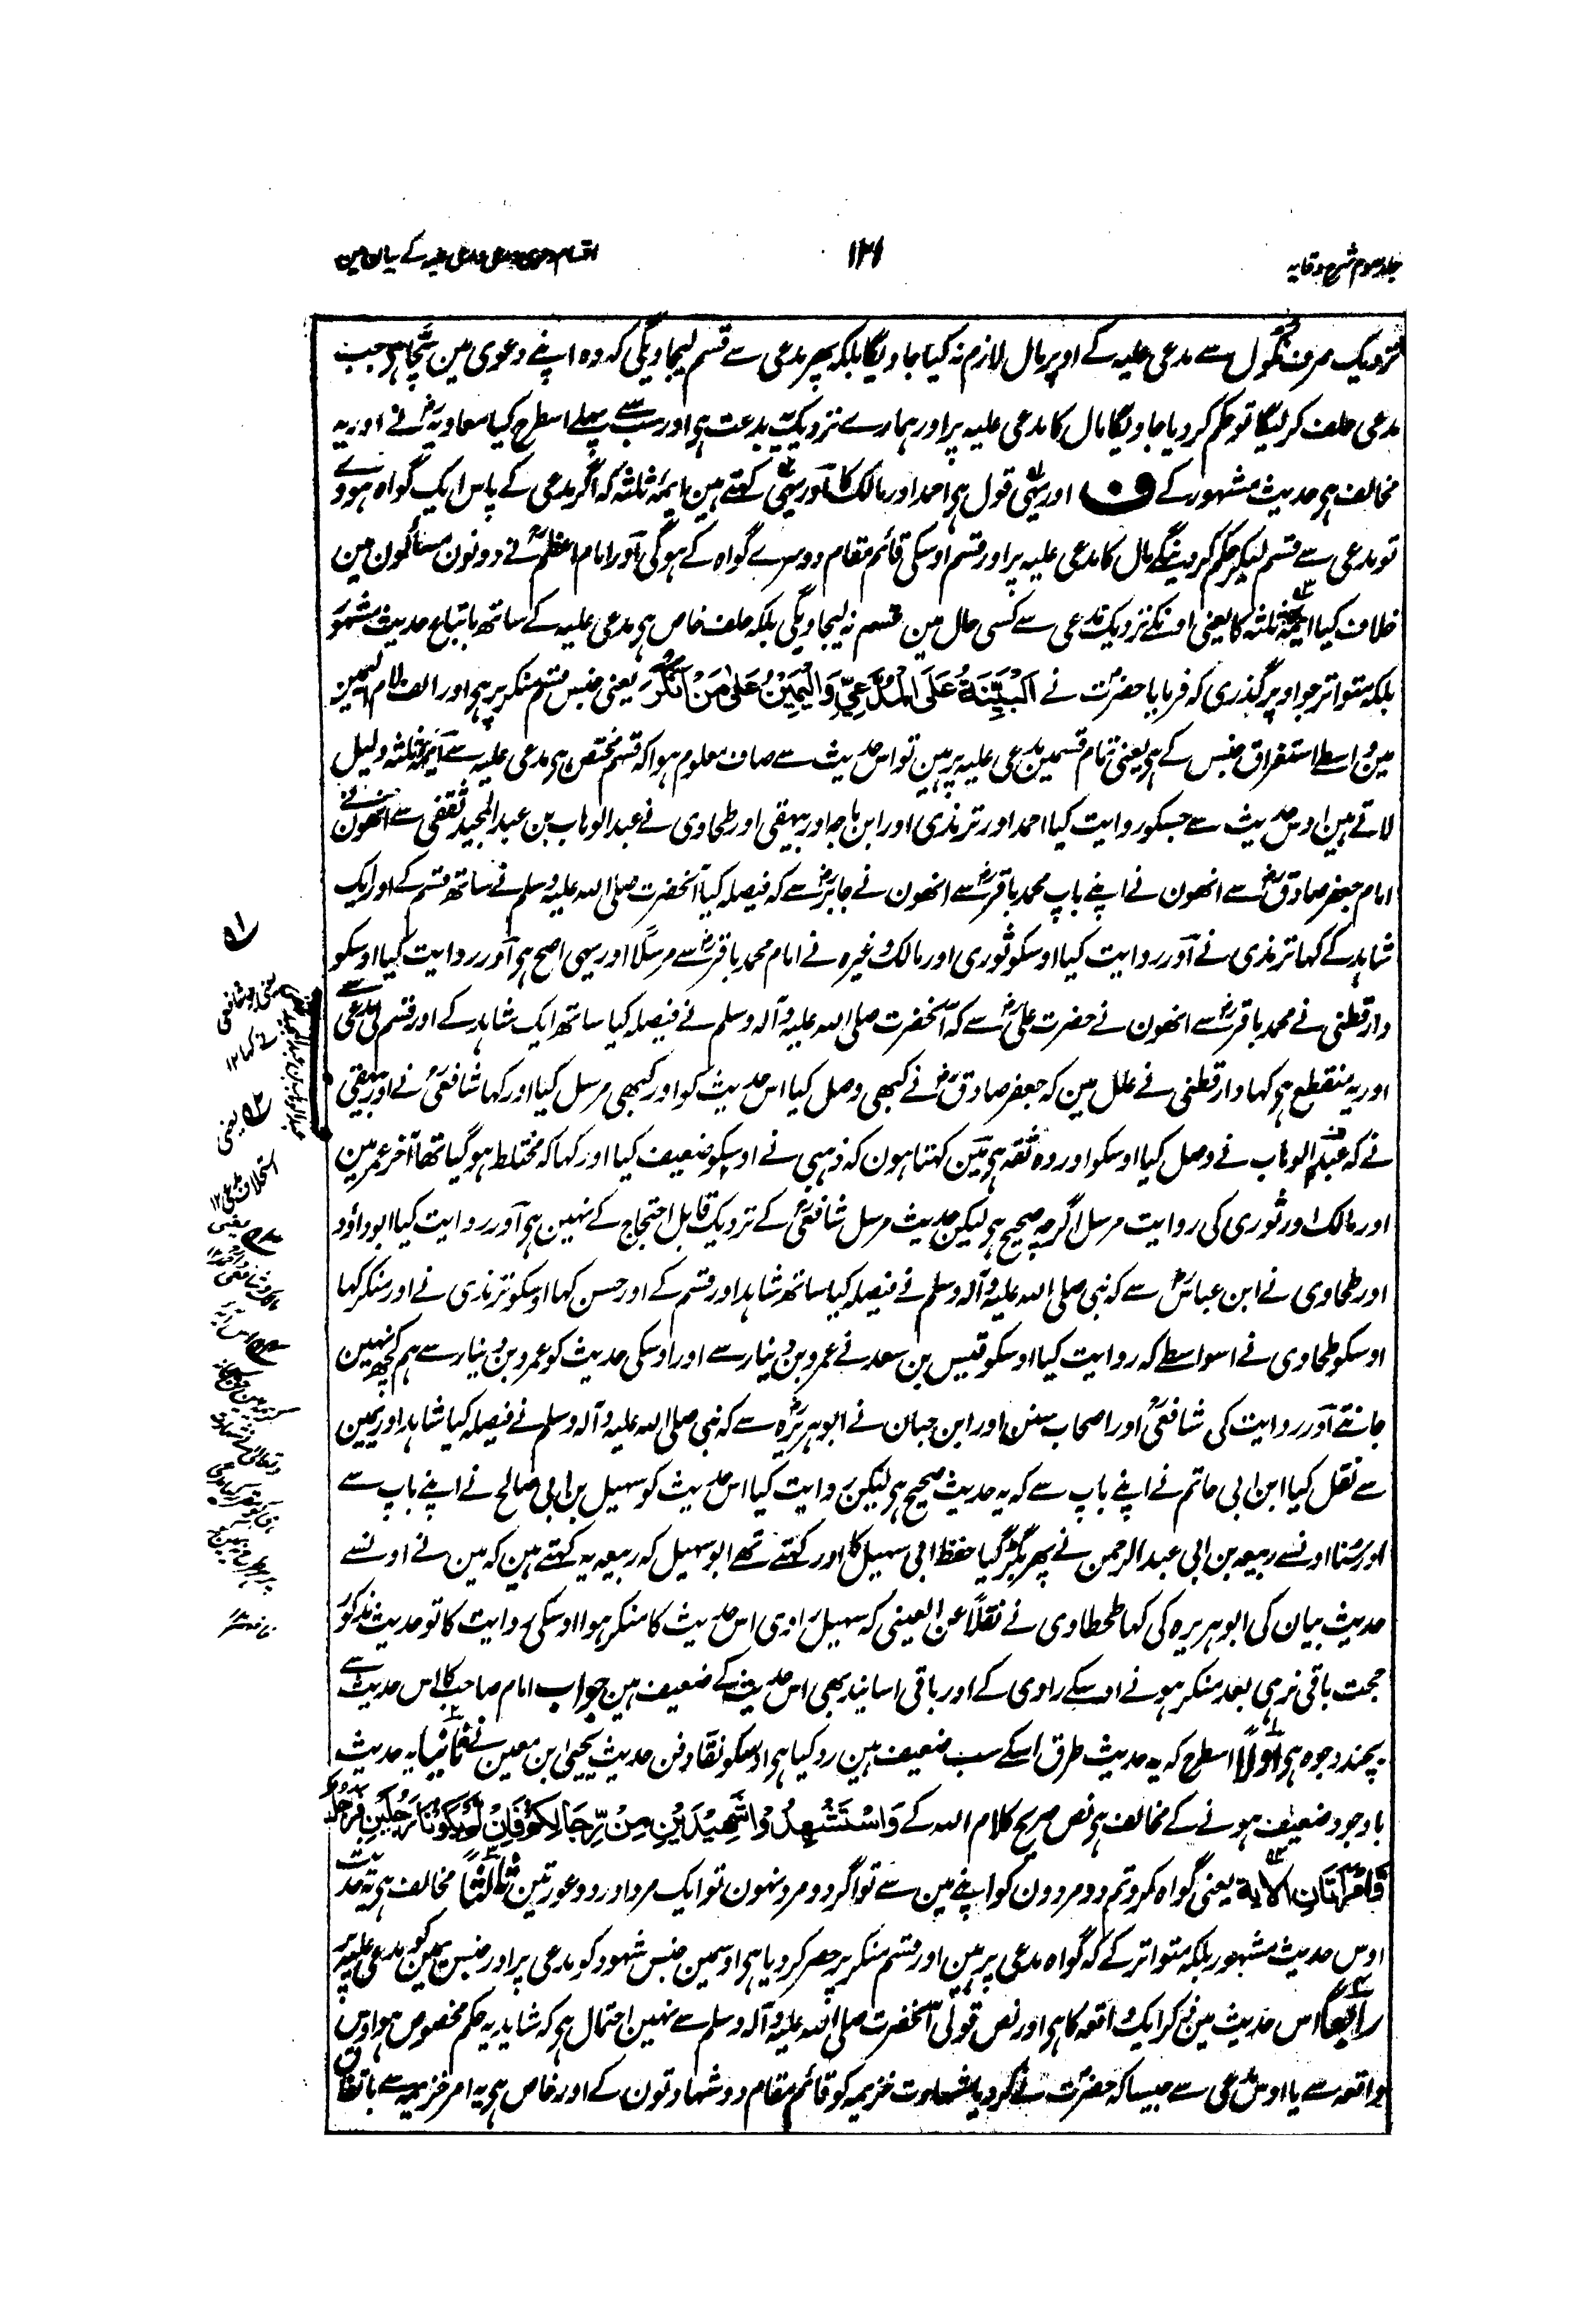 جلد سوم شرح وقایہ
۱۲۱
اقسام دعوی و مدعی و مدعی علیہ کے بیان مین
نزدیک صرف نکول سے مدعی علیہ کے اوپر مال لازم نہ کیا جاویگا بلکہ پھر مدعی سے قسم لیجاویگی کہ وہ اپنے دعوی مین سچا ہی جب
مدعی حلف کرلیگا تو حکم کردیا جاویگا مال کا مدعی علیہ پر اور ہمارے نزدیک یہ بدعت ہی اور سب سے پہلے اسطرح کیا معاویہؓ نے اور یہ
مخالف ہی حدیث مشہور کے ف اور یہی قول ہی احمد اور مالک کا اور یہی کہتے ہین ایمۂ ثلثہ کہ اگر مدعی کے پاس ایک گواہ ہووے
تو مدعی سے قسم لیکر حکم کردینگے مال کا مدعی علیہ پر اور قسم اوسکی قائم مقام دوسرے گواہ کے ہوگی اور امام اعظمؒ نے دونون مسئلون مین
خلاف کیا ایمۂ ثلثہ کا یعنی اونکے نزدیک مدعی سے کسی حال مین قسم نہ لیجاویگی بلکہ حلف خاص ہی مدعی علیہ کے ساتھ باتباع حدیث مشہور
بلکہ متواتر جو اوپر گذری کہ فرمایا حضرتؐ نے اَلْبَیِّنَةُ عَلَی الْمُدَّعِیِّ وَالْیَمِیْنُ عَلیٰ مَنْ اَنْکَرَ یعنی جنس قسم منکر پر ہی اور الف لام الیمین
مین واسطے استغراق جنس کے ہی یعنی تمام قسمین مدعی علیہ پر ہین تو اس حدیث سے صاف معلوم ہوا کہ قسم مختص ہی مدعی علیہ سے ایمۂ ثلثہ دلیل
لاتے ہین اوس حدیث سے جسکو روایت کیا احمد اور ترمذی اور ابن ماجہ اور بیہقی اور طحاوی نے عبدالوہاب بن عبدالمجید ثقفی سے انھون نے
امام جعفر صادقؓ سے انھون نے اپنے باپ محمد باقرؓ سے انھون نے جابرؓ سے کہ فیصلہ کیا آنحضرت صلی اللہ علیہ وسلم نے ساتھ قسم کے اور ایک
شاہد کے کہا ترمذی نے اور روایت کیا اوسکو ثوری اور مالک وغیرہ نے امام محمد باقرؓ سے مرسلًا اور یہی اصح ہی اور روایت کیا اوسکو
دارقطنی نے محمد باقرؓ سے انھون نے حضرت علیؓ سے کہ آنحضرت صلی اللہ علیہ وآلہ وسلم نے فیصلہ کیا ساتھ ایک شاہد کے اور قسم لی مدعی سے
اور یہ منقطع ہی کہا دارقطنی نے علل مین کہ جعفر صادقؓ نے کبھی وصل کیا اس حدیث کو اور کبھی مرسل کیا اور کہا شافعیؒ نے اور بیہقی
نے کہ عبدالوہاب نے وصل کیا اوسکو اور وہ ثقہ ہی مین کہتا ہون کہ ذہبی نے اوسکو ضعیف کیا اور کہا کہ مختلط ہوگیا تھا آخر عمر مین
اور مالک اور ثوری کی روایت مرسل اگرچہ صحیح ہی لیکن حدیث مرسل شافعیؒ کے نزدیک قابل احتجاج کے نہین ہی اور روایت کیا ابو داؤد
اور طحاوی نے ابن عباسؓ سے کہ نبی صلی اللہ علیہ وآلہ وسلم نے فیصلہ کیا ساتھ شاہد اور قسم کے اور حسن کہا اوسکو ترمذی نے اور منکر کہا
اوسکو طحاوی نے اسواسطے کہ روایت کیا اوسکو قیس بن سعد نے عمرو بن دینار سے اور اوسکی حدیث کو عمرو بن دینار سے ہم کچھ نہین
جانتے اور روایت کی شافعیؒ اور اصحاب سنن اور ابن حبان نے ابو ہریرہؓ سے کہ نبی صلی اللہ علیہ وآلہ وسلم نے فیصلہ کیا شاہد اور یمین
سے نقل کیا ابن ابی حاتم نے اپنے باپ سے کہ یہ حدیث صحیح ہی لیکن روایت کیا اس حدیث کو سہیل بن ابی صالح نے اپنے باپ سے
اور سُنا اونسے ربیعہ بن ابی عبدالرحمن نے پھر بگڑ گیا حفظ ابی سہیل کا اور کہتے تھے ابو سہیل کہ ربیعہ یہ کہتے ہین کہ مین نے اونسے
حدیث بیان کی ابو ہریرہ کی کہا طحطاوی نے نقلًا عن العینی کہ سہیل راوی اس حدیث کا منکر ہوا اوسکی روایت کا تو حدیث مذکور
حجت باقی نرہی بعد منکر ہونے اوسکے راوی کے اور باقی اسانید بھی اس حدیث کے ضعیف ہین جواب امام صاحب کا اس حدیث سے
بچند وجوہ ہی اولًا اسطرح کہ یہ حدیث طرق اسکے سب ضعیف ہین رد کیا ہی اوسکو نقاد فن حدیث یحیی ابن معین نے ثانیا یہ حدیث
باوجود ضعیف ہونے کے مخالف ہی نص صریح کلام اللہ کے وَاسْتَشْهِدُوْا شَهِیْدَیْنِ مِنْ رِّجَالِکُمْ فَاِنْ لَّمْ یَکُوْنَا رَجُلَیْنِ فَرَجُلٌ
وَّامْرَاَتَانِ الایۃ یعنی گواہ کرو تم دو مردون کو اپنے مین سے تو اگر دو مرد نہون تو ایک مرد اور دو عورتین ثالثًا مخالف ہی یہ حدیث
اوس حدیث مشہور بلکہ متواتر کے کہ گواہ مدعی پر ہین اور قسم منکر پر حصر کردیا ہی اوسمین جنس شہود کو مدعی پر اور جنس یمین کو مدعی علیہ پر
رابعًا اس حدیث مین ذکر ایک واقعہ کا ہی اور نص قولی آنحضرت صلی اللہ علیہ وآلہ وسلم سے نہین احتمال ہی کہ شاید یہ حکم مخصوص ہو اوس
واقعہ سے یا اوس مدعی سے جیسا کہ حضرتؐ نے کردیا شہادت خزیمہ کو قائم مقام دو شہادتون کے اور خاص ہی یہ امر خزیمہ سے باتفاق
یعنی ابو شافعی
نے کہا ۱۲
یعنی
استحلاف مدعی ۱۲
یعنی